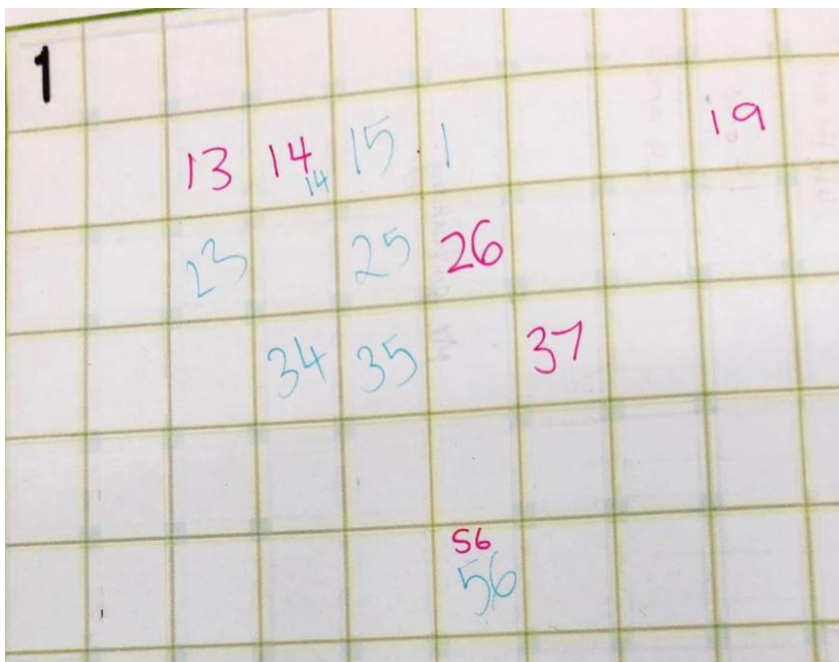 1
13 14 14 15 1 19
23 25 26
34 35 37
56
56